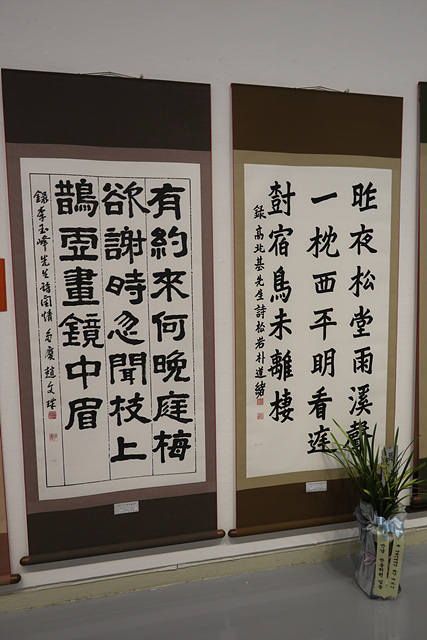 昨夜松堂雨溪聲
一枕西平明看庭
樹宿鳥未離棲
錄高兆基先生詩松 朴道緖
有約來何晩庭梅
欲謝時忽聞枝上
鵲虛畫鏡中眉
錄李玉峰先生詩閨情 趙文